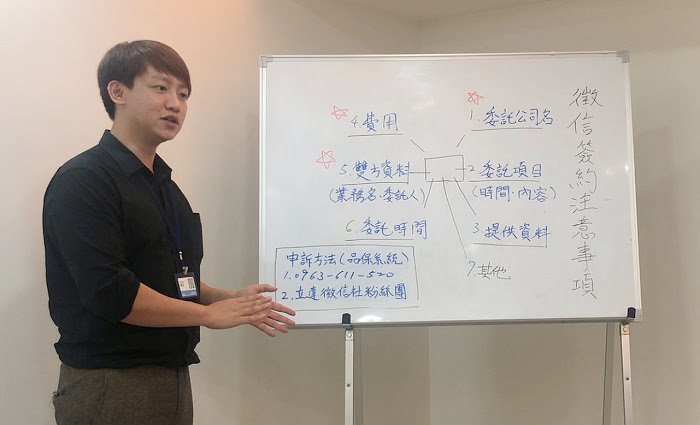 徵信簽約注意事項
1.委託公司名
2 委託項目
(時間.內容)
3.提供資料
4.費用
5.雙方資料
(業務名.委託人)
6.委託時間
7.其他
申訴方法(品保系統)
1.0963-611-520
2.立達徵信社粉絲團